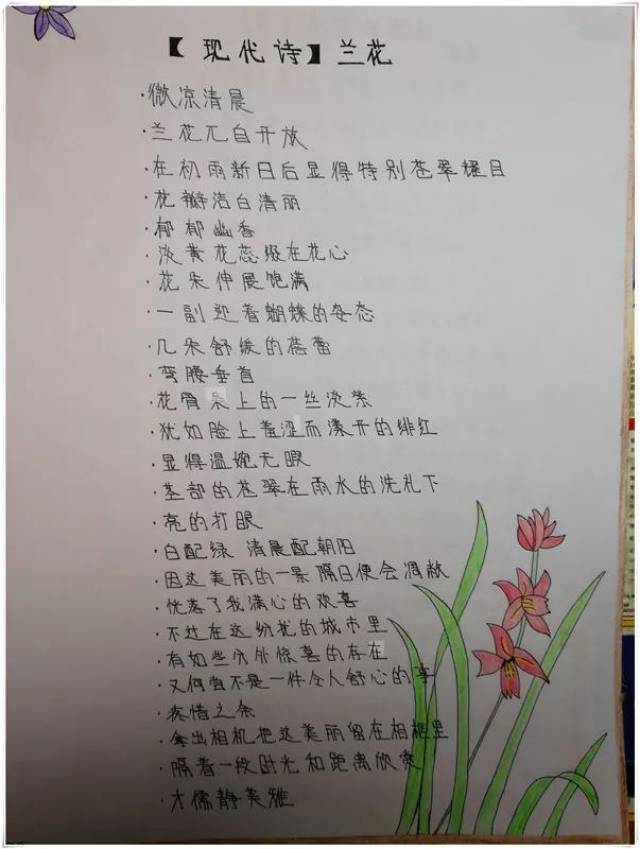 【现代诗】兰花
·微凉清晨
·兰花兀自开放
·在初雨新日后显得特别苍翠耀目
·花瓣洁白清丽
·郁郁幽香
·淡黄花蕊缀在花心
·花朵伸展饱满
·一副迎着蝴蝶的姿态
·几朵舒缓的蓓蕾
·弯腰垂首
·花骨朵上的一丝淡紫
·犹如脸上羞涩而漾开的绯红
·显得温婉无暇
·茎部的苍翠在雨水的洗礼下
·亮的打眼
·白配绿 清晨配朝阳
·因这美丽的一景隔日便会凋敝
·恍落了我满心的欢喜
·不过在这纷扰的城市里
·有如些分外惊喜的存在
·又何尝不是一件令人舒心的事
·疼惜之余
·拿出相机把这美丽留在相框里
·隔着一段时光和距离欣赏
·才儒静美雅